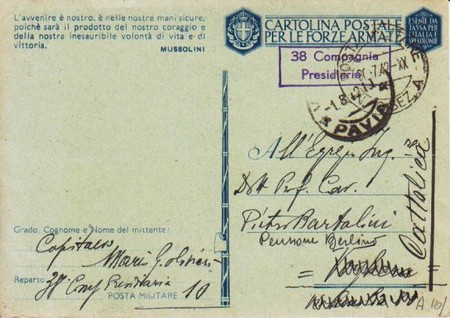 L'avvenire è nostro, è nelle nostre mani sicure,
poichè sarà il prodotto del nostro coraggio e
della nostra inesauribile volontà di vita e di
vittoria.
MUSSOLINI
CARTOLINA POSTALE
PER LE FORZE ARMATE
ESENTE DA
TASSA PER
L'ITALIA E
38 Compagnia
Presidiaria
-7.42-XX
-1.8.42
PAVIA
All'Egregio Ing.
Dott Prof. Cav.
Pietro Bartolini
Pensione Berlino
Cattolica
Grado, Cognome e Nome del mittente:
Mario
Reparto 38 Comp Presidiaria
POSTA MILITARE 10